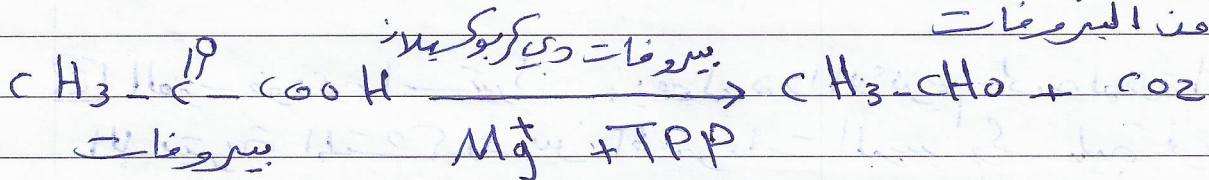 من البيروفات
CH3-C-COOH بيروفات دي كربوكسيلاز → CH3-CHO + CO2
O
بيروفات Mg+ +TPP